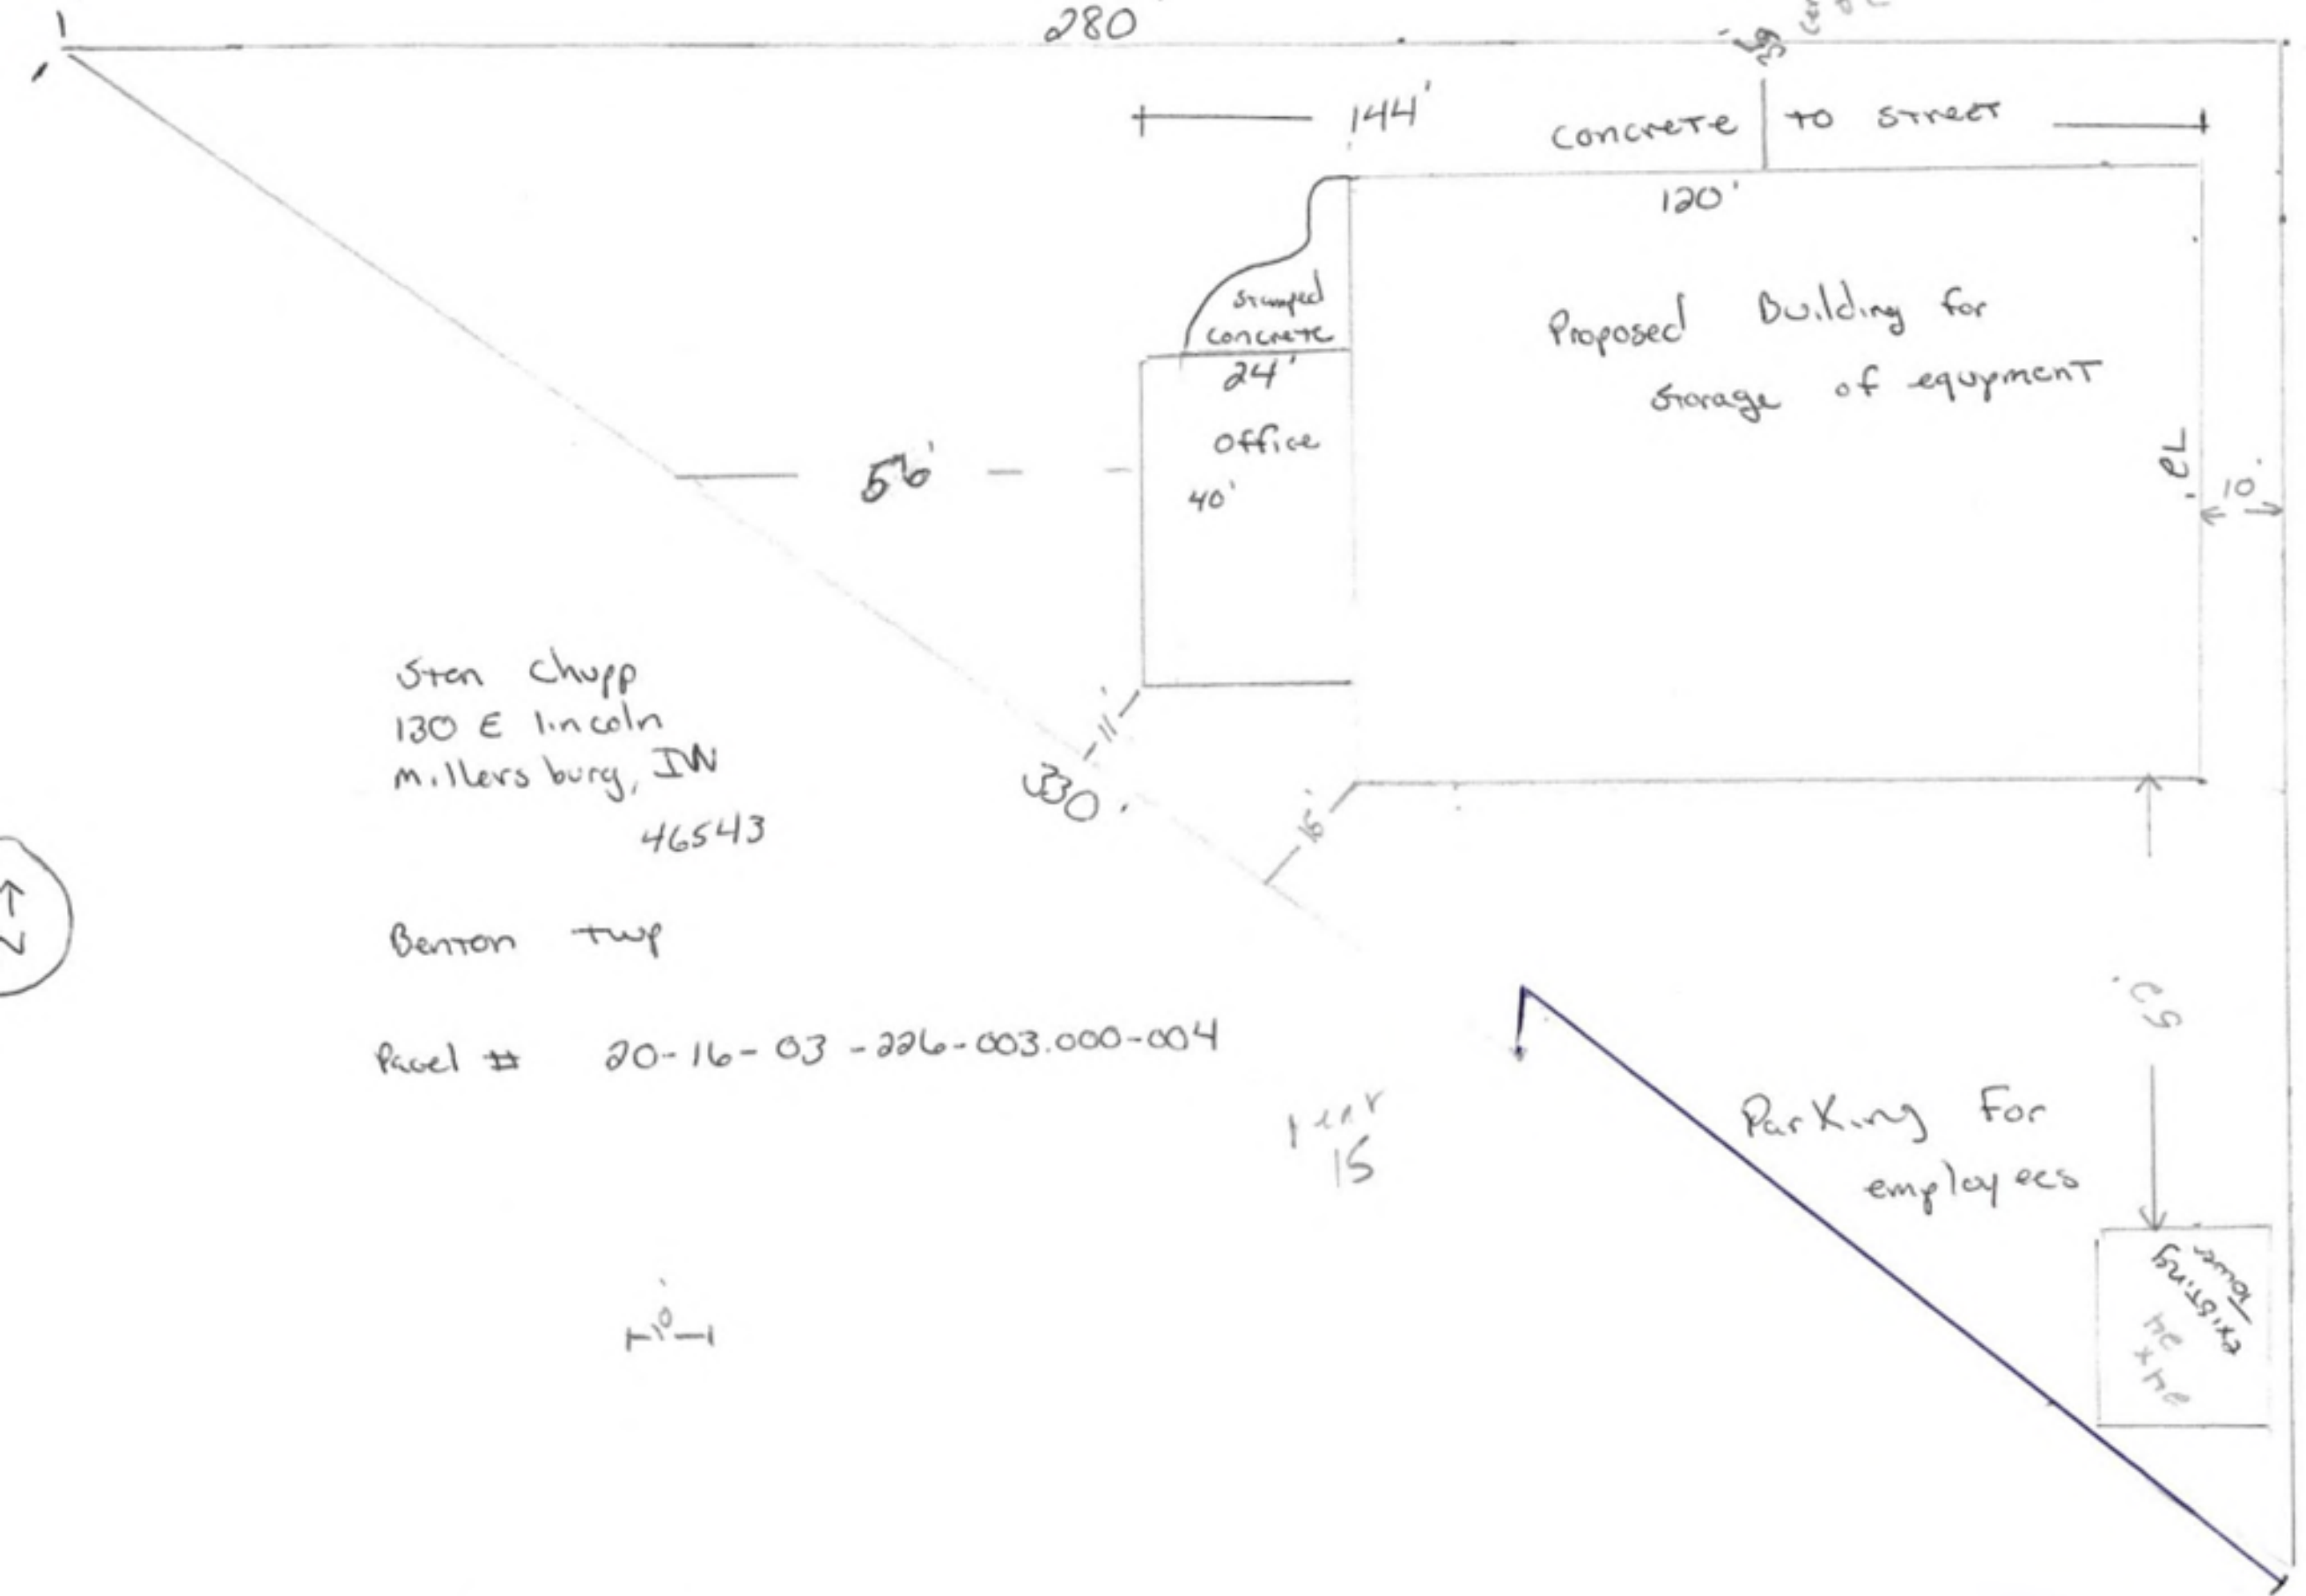 280
144' Concrete to street
120'
Stamped
concrete
24'
office
40'
Proposed Building for
storage of equpment
72'
10'
56'
11'
330'
16'
Sten Chupp
130 E lincoln
Millersburg, IN
46543
Benton twp
Pacel # 20-16-03-226-003.000-004
15
Parking For
employees
existing
24x24
10'